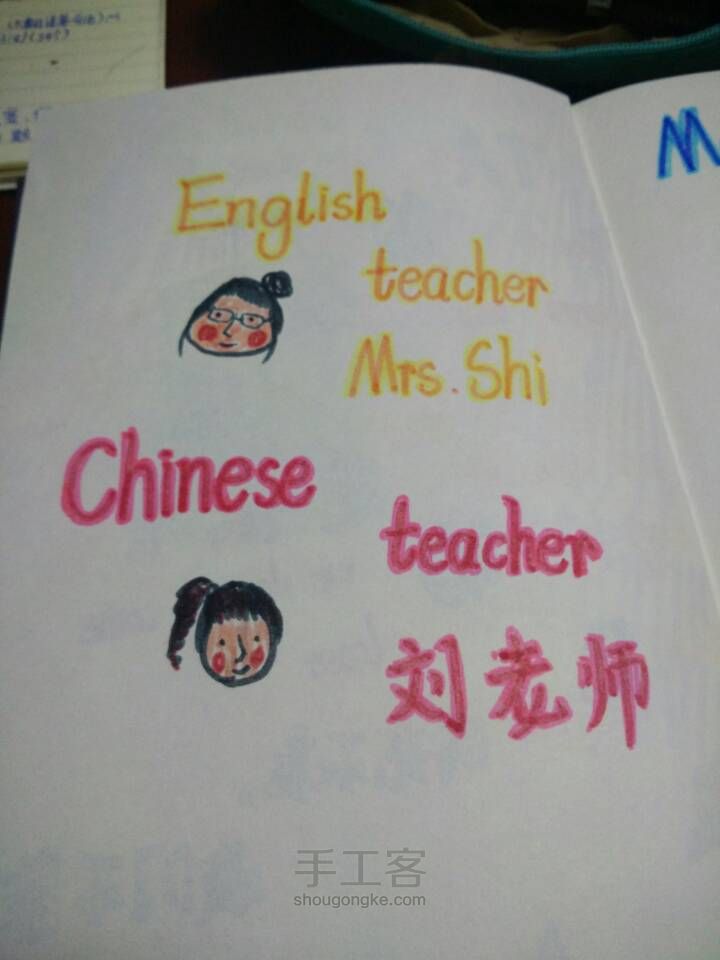 English
teacher
Mrs. Shi
Chinese
teacher
刘老师
M
手工客
shougongke.com